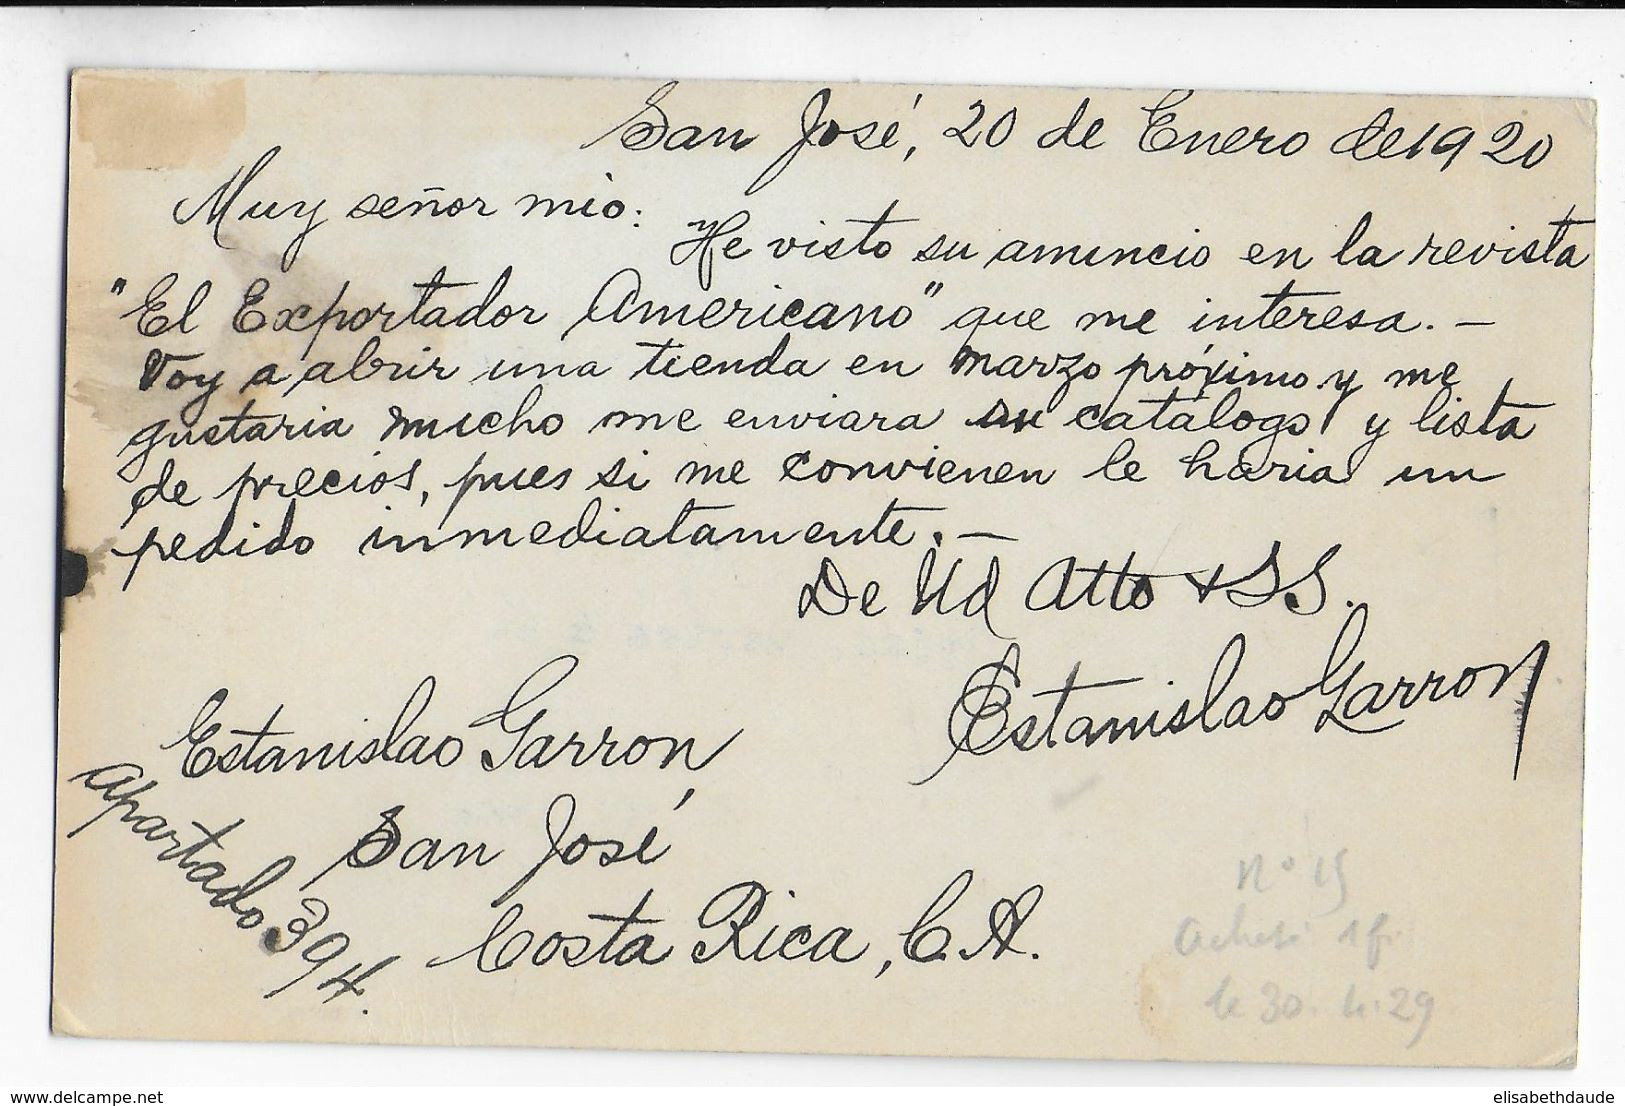 San José, 20 de Enero de 1920
Muy señor mio:
He visto su anuncio en la revista
"El Exportador Americano" que me interesa. —
Voy a abrir una tienda en marzo próximo y me
gustaria mucho me enviara su catálogo y lista
de precios, pues si me convienen le haria un
pedido inmediatamente. —
De Ud Atto + SS.
Estanislao Garron
Estanislao Garron,
Apartado 394.
San José
Costa Rica, C. A.
N° 15
Acheté 1f.
le 30. 4. 29
delcampe.net
elisabethdaude